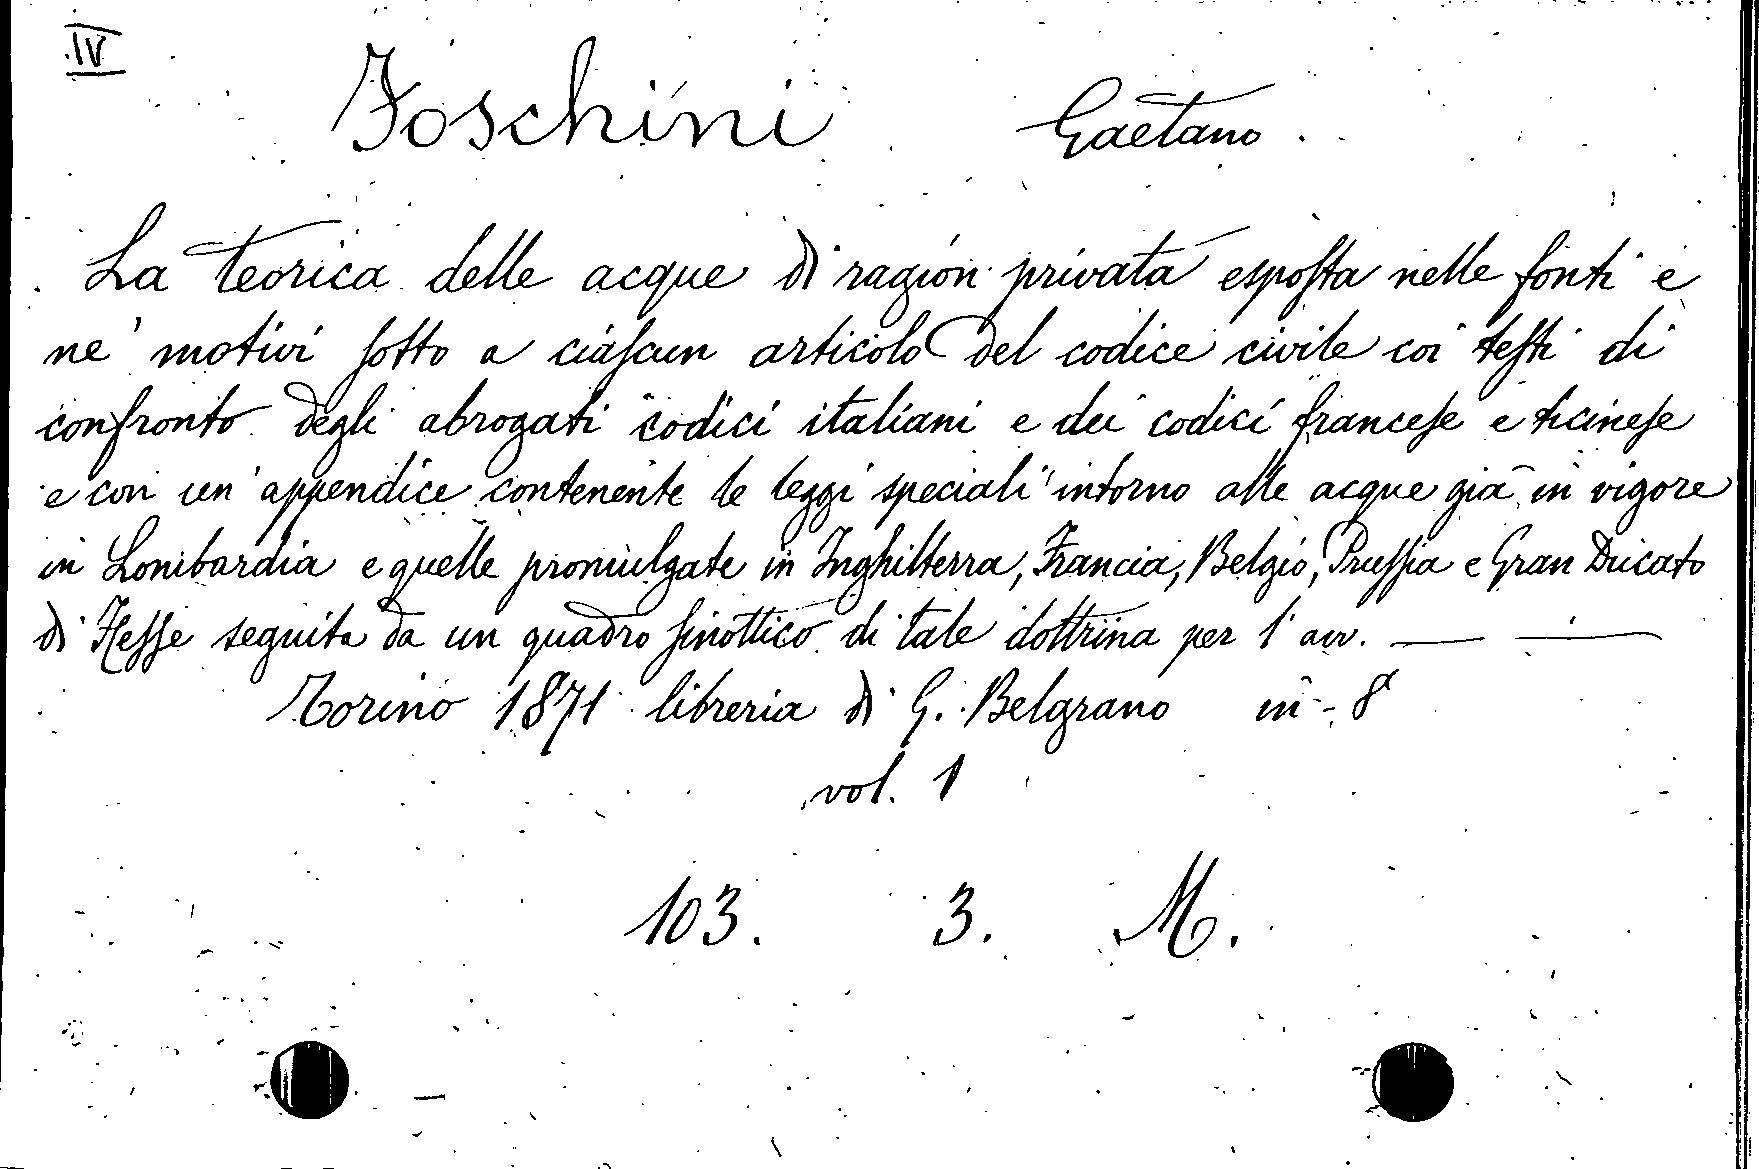 IV
Foschini Gaetano.
La teorica delle acque di ragion privata esposta nelle fonti e
ne' motivi sotto a ciascun articolo del codice civile coi testi di
confronto degli abrogati codici italiani e dei codici francese e ticinese
e con un' appendice contenente le leggi speciali intorno alle acque già in vigore
in Lombardia e quelle promulgate in Inghilterra, Francia, Belgio, Prussia e Gran Ducato
di Hesse seguita da un quadro sinottico di tale dottrina per l' avv. — —
Torino 1871 libreria di G. Belgrano in - 8°
vol. 1
103. 3. M.